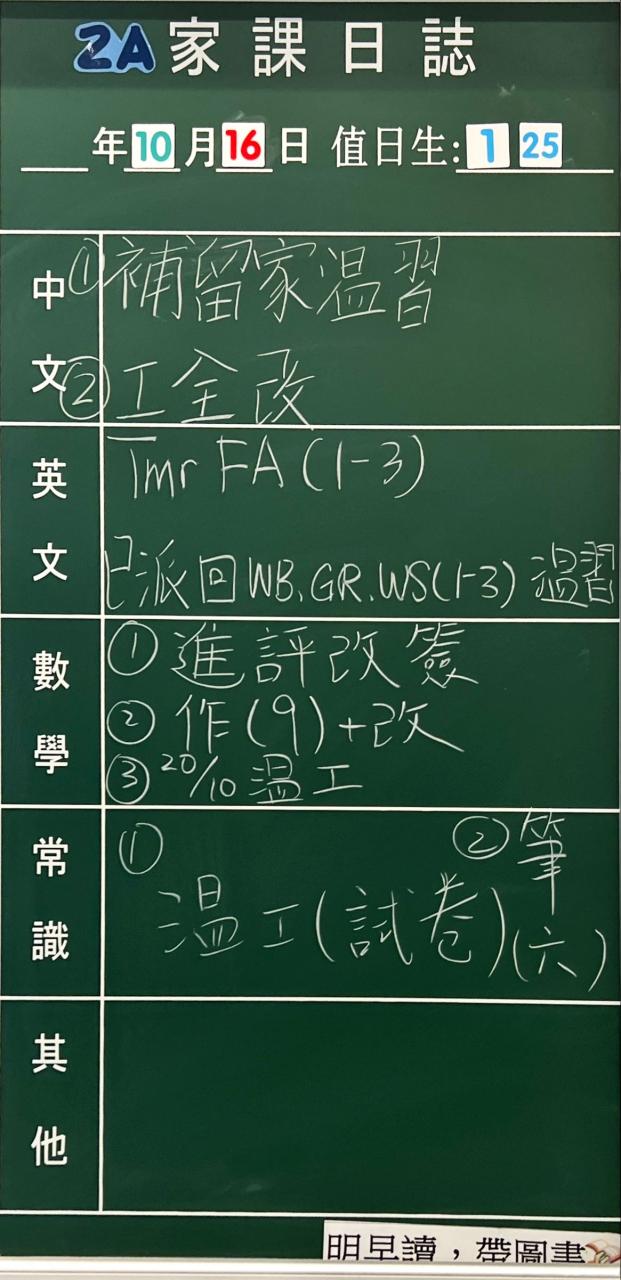 2A家課日誌
年10月16日 值日生:1 25
中文
①補留家温習
②工全改
英文
Tmr FA (1-3)
已派回WB.GR.WS(1-3) 温習
數學
①進評改簽
②作(9)+改
③20/10温工
常識
①温工(試卷)
②筆(六)
其他
明早讀，帶圖書